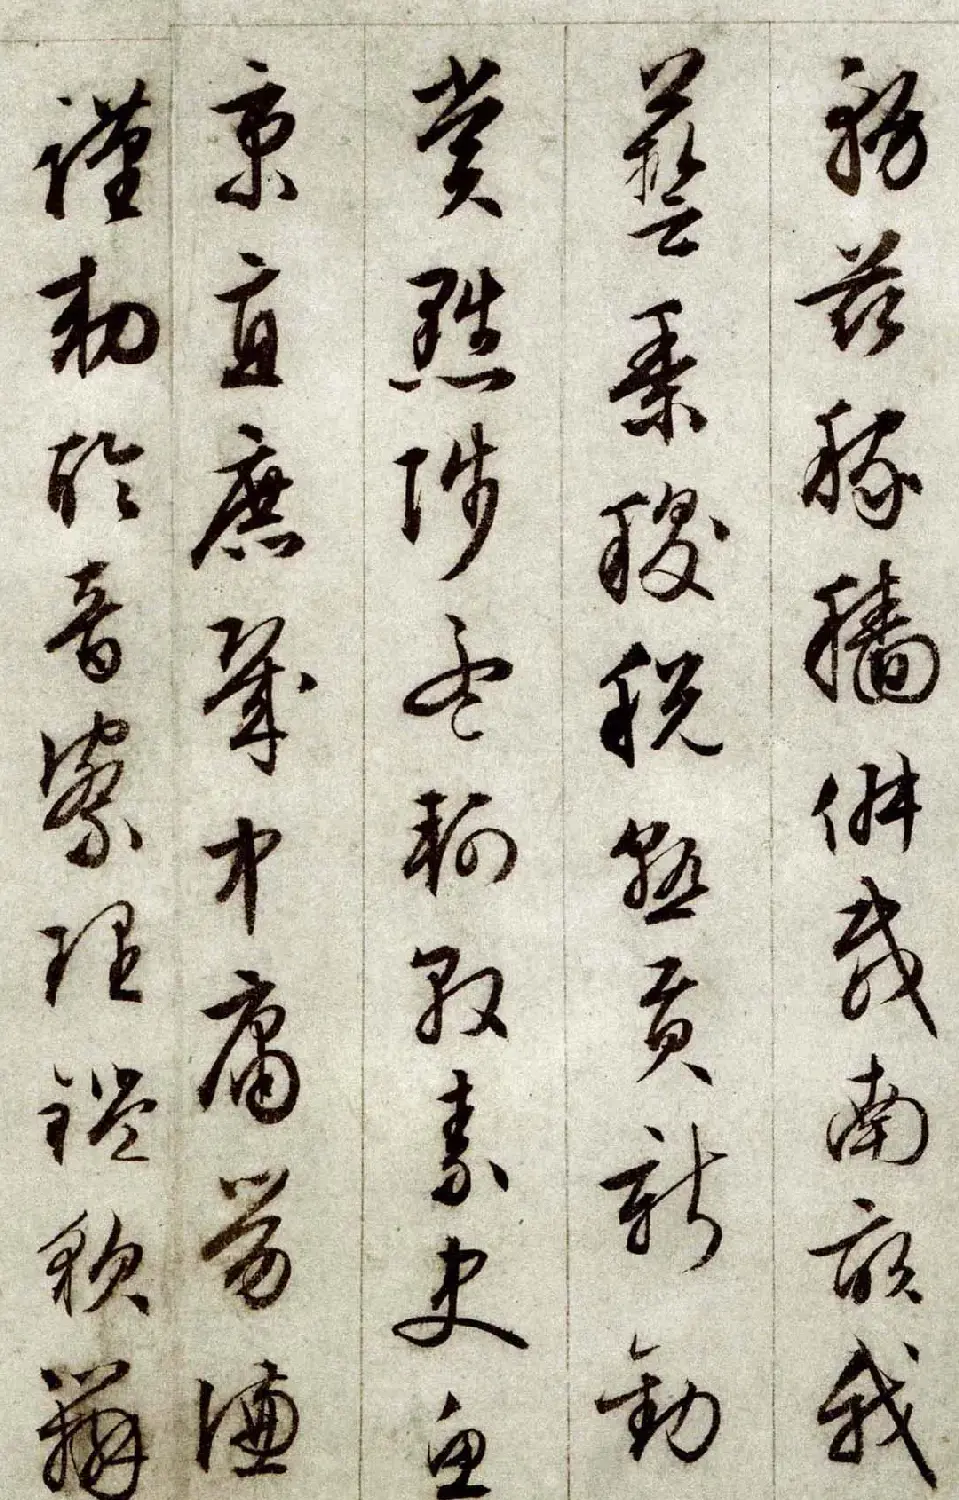 務茲稼穡俶載南畝我
藝黍稷稅熟貢新勸
賞黜陟孟軻敦素史魚
秉直庶幾中庸勞謙
謹勅聆音察理鑑貌辯